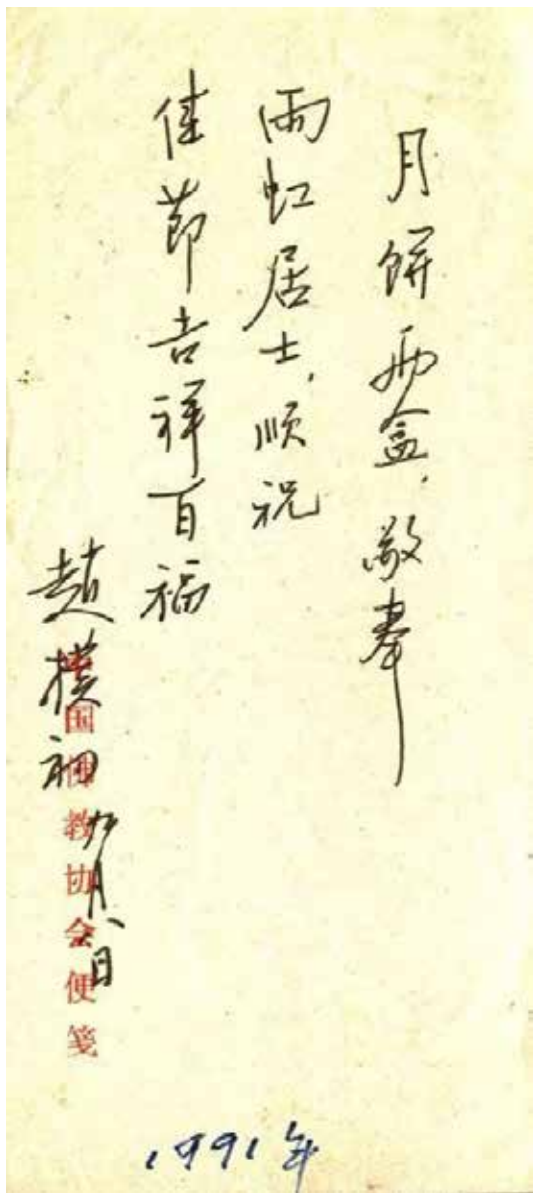 月餅两盒，敬奉
雨虹居士，順祝
佳節吉祥百福
趙樸初
九月八日
中国佛教协会便笺
1991年